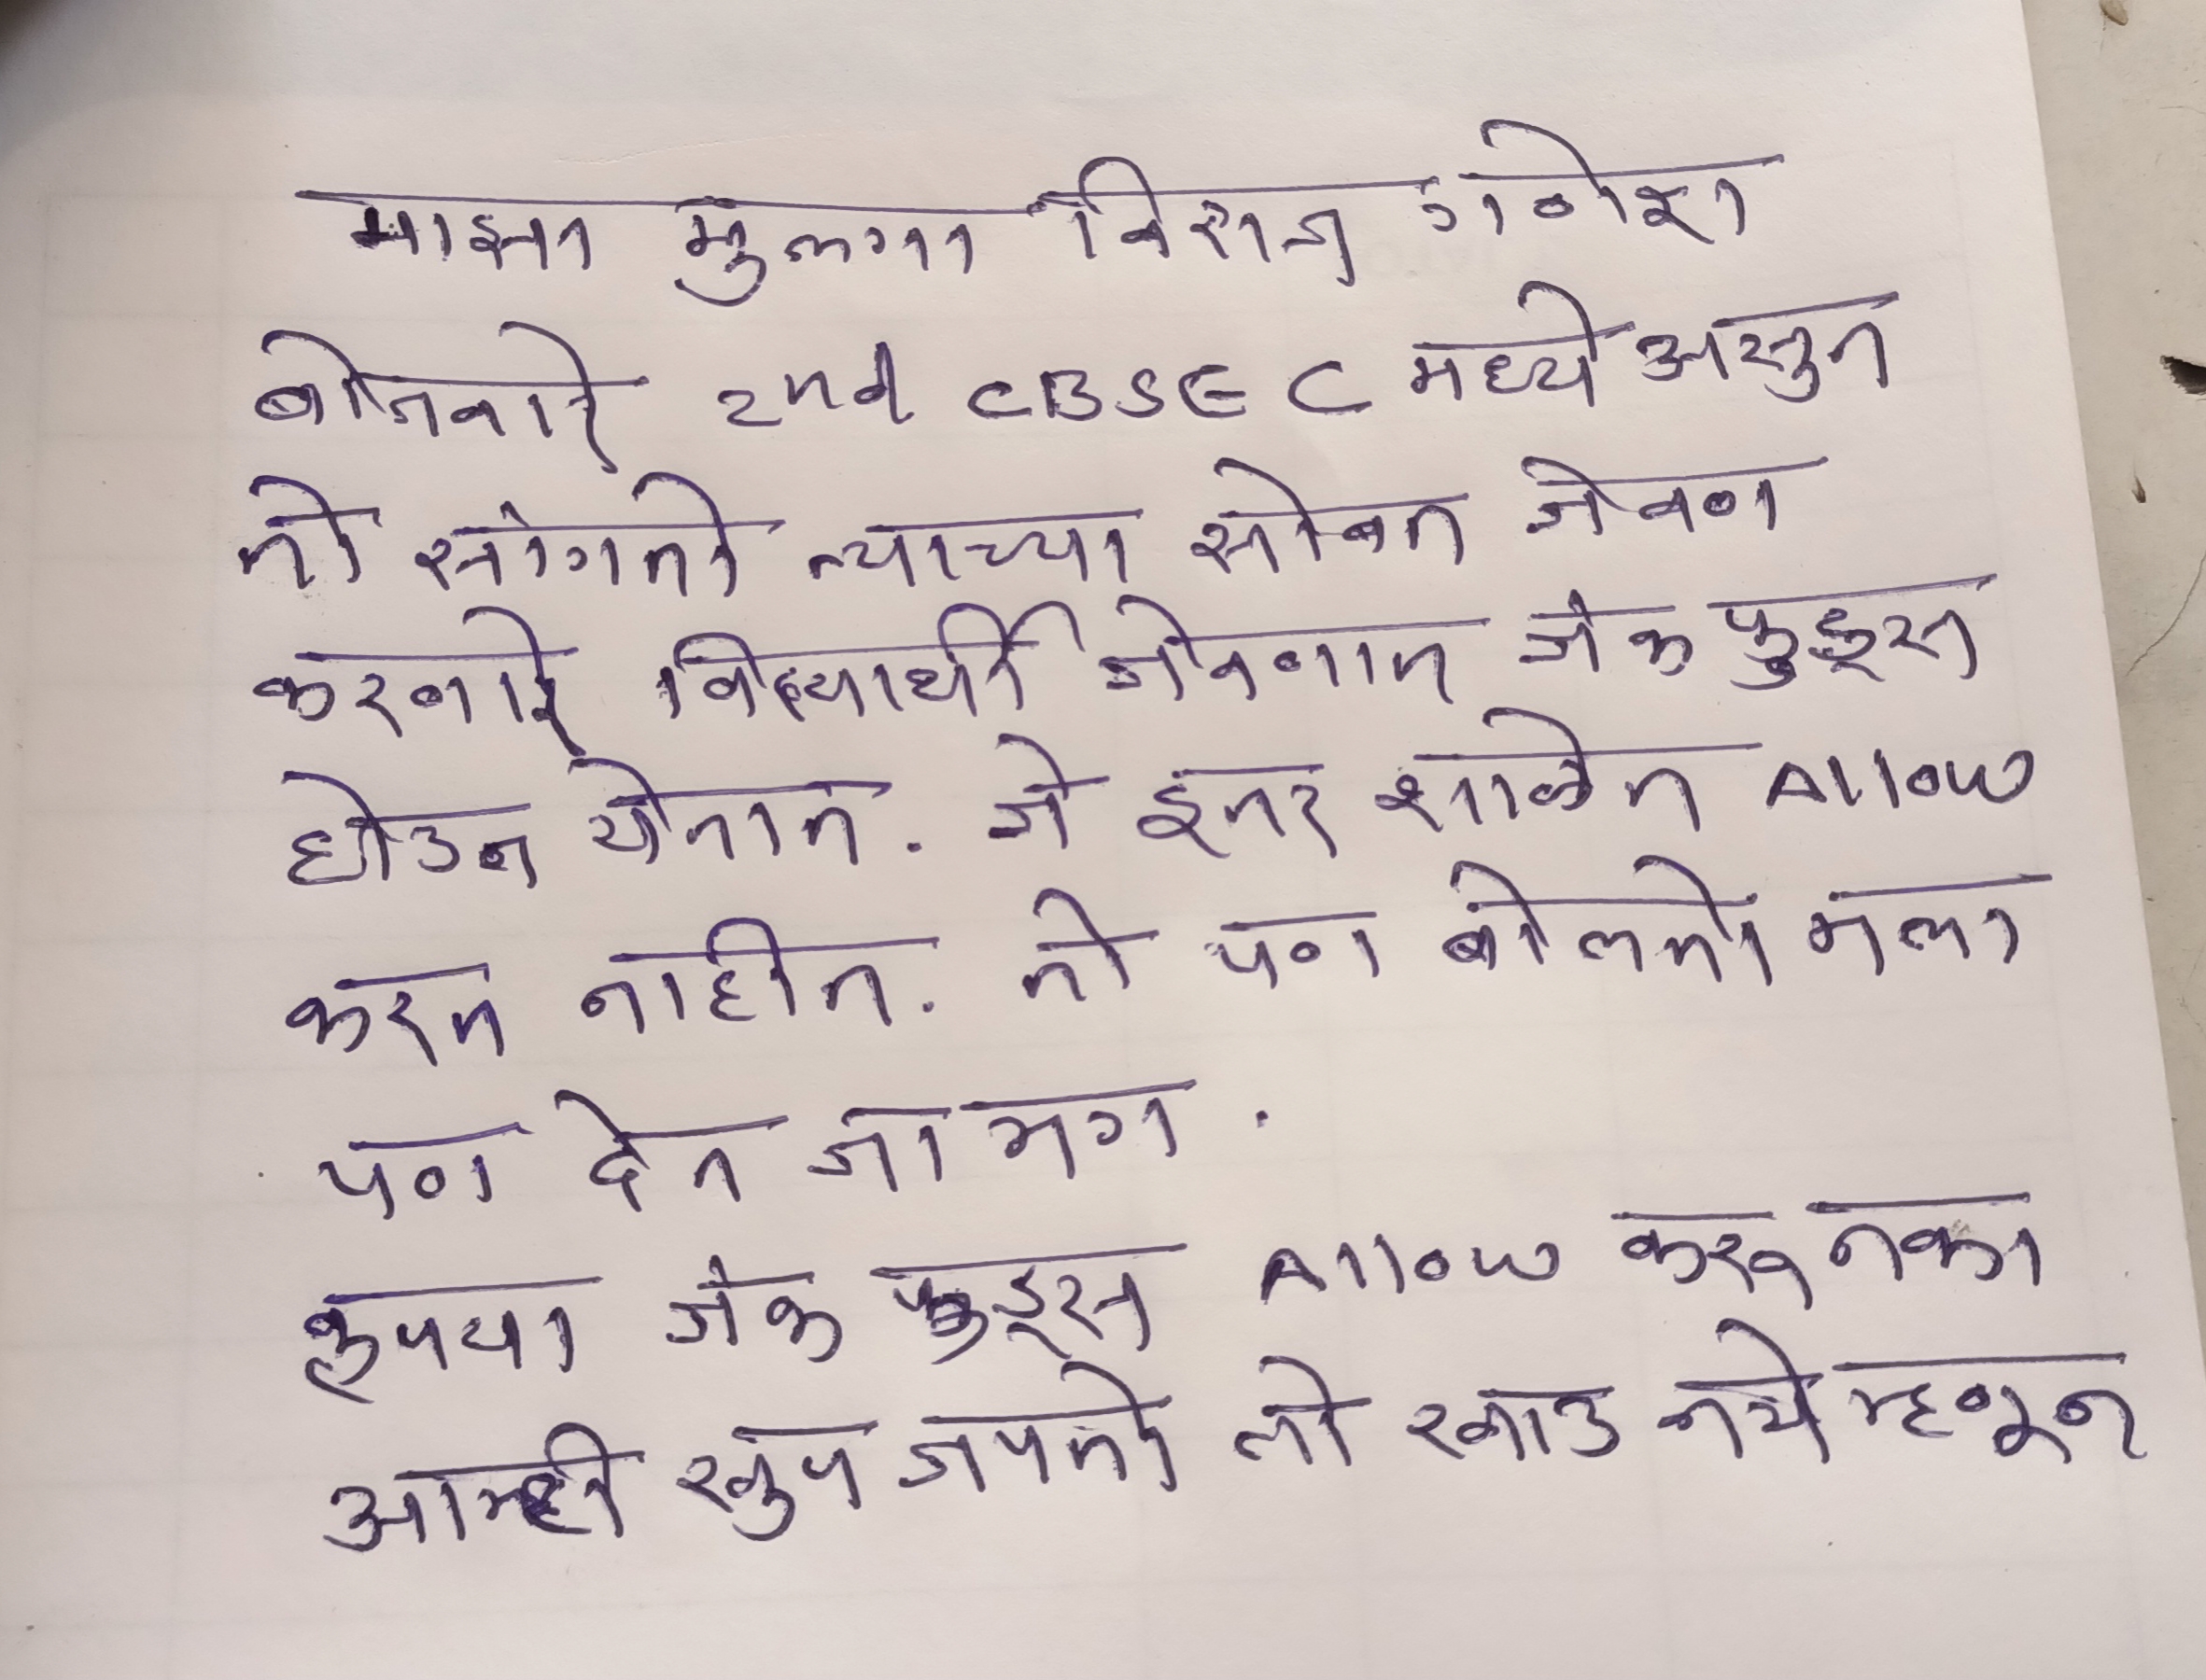 माझा मुलगा विराज गणेश
बोजवारे 2nd CBSE C मध्ये असुन
तो सांगतो त्याच्या सोबत जेवण
करणारे विद्यार्थी जेवणात जंक फुड्स
घेउन येतात. जे इतर शाळेत Allow
करत नाहीत. तो पण बोलतो मला
पण देत जा मग.
कृपया जंक फुड्स Allow करू नका
आम्ही खुप जपतो तो खाउ नये म्हणून